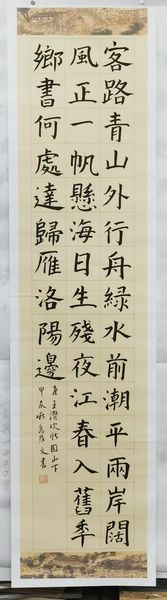 客路青山外行舟綠水前潮平兩岸闊
風正一帆懸海日生殘夜江春入舊年
鄉書何處達歸雁洛陽邊
王灣次北固山下
甲辰秋 書